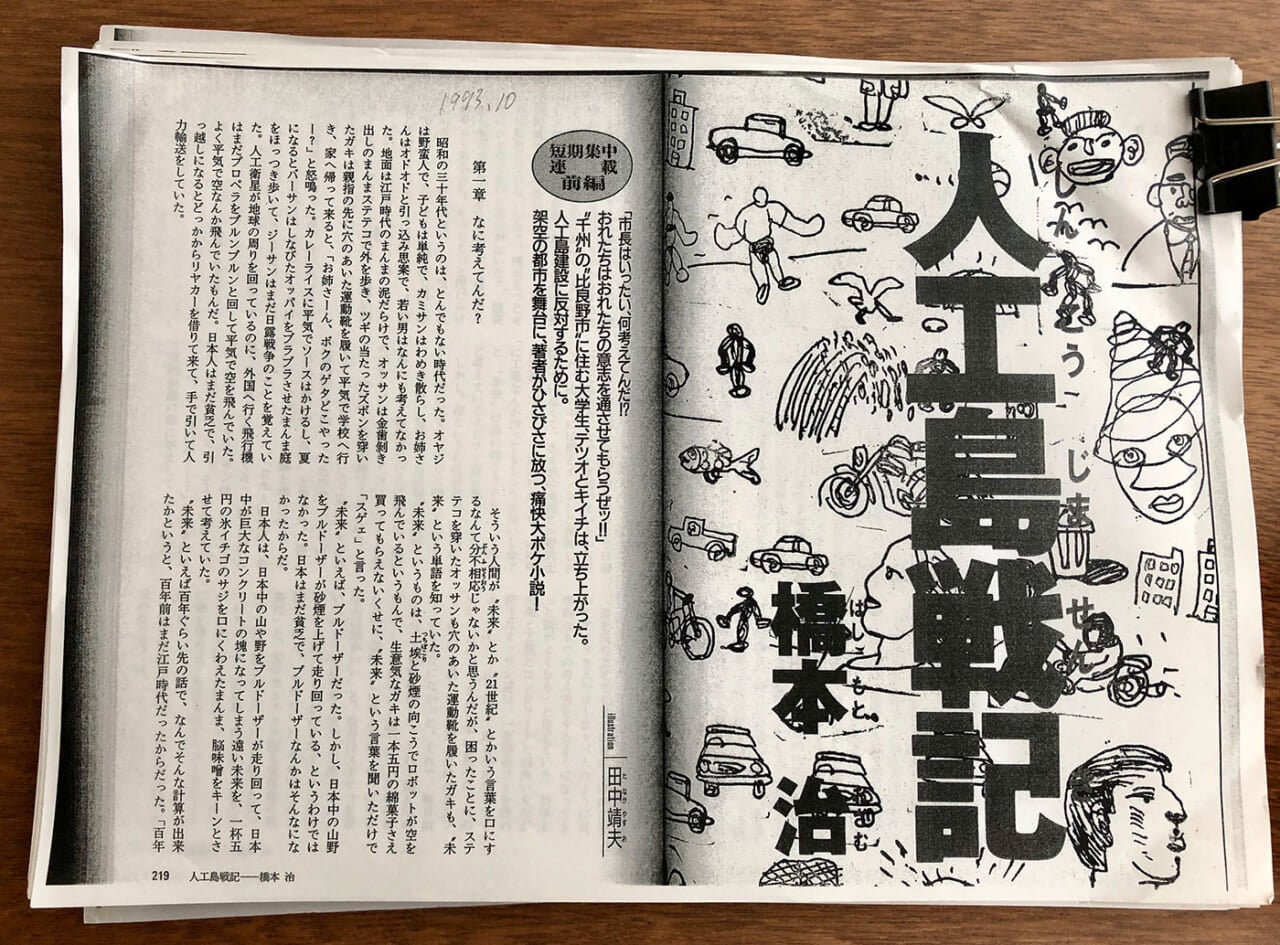 人工島戦記
じんこうじません
橋本 治
はしもとおさむ
1993.10
短期集中
連載
前編
「市長はいったい、何考えてんだ!?
おれたちはおれたちの意志を通させてもらうぜッ!!」
〝千州〟の〝比良野市〟に住む大学生、テツオとキイチは、立ち上がった。
人工島建設に反対するために。
架空の都市を舞台に、著者がひさびさに放つ、痛快大ボケ小説!
illustration
田中靖夫
たなかやすお
第一章 なに考えてんだ?
昭和の三十年代というのは、とんでもない時代だった。オヤジ
は野蛮人で、子どもは単純で、カミサンはわめき散らし、お姉さ
んはオドオドと引っ込み思案で、若い男はなんにも考えてなかっ
た。地面は江戸時代のまんまの泥だらけで、オッサンは金歯剝き
出しのまんまステテコで外を歩き、ツギの当たったズボンを穿い
たガキは親指の先に穴のあいた運動靴を履いて平気で学校へ行
き、家へ帰って来ると、「お姉さーん、ボクのゲタどこやった
ー?」と怒鳴った。カレーライスに平気でソースはかけるし、夏
になるとバーサンはしなびたオッパイをブラブラさせたまんま庭
をほっつき歩いて、ジーサンはまだ日露戦争のことを覚えてい
た。人工衛星が地球の周りを回っているのに、外国へ行く飛行機
はまだプロペラをブルンブルンと回して平気で空を飛んでいた。
よく平気で空なんか飛んでいたもんだ。日本人はまだ貧乏で、引
っ越しになるとどっかからリヤカーを借りて来て、手で引いて人
力輸送をしていた。
そういう人間が〝未来〟とか〝21世紀〟とかいう言葉を口にす
るなんて分不相応じゃないかと思うんだが、困ったことに、ステ
テコを穿いたオッサンも穴のあいた運動靴を履いたガキも、〝未
来〟という単語を知っていた。
〝未来〟というものは、土埃と砂煙の向こうでロボットが空を
飛んでいるというもんで、生意気なガキは一本五円の綿菓子さえ
買ってもらえないくせに、〝未来〟という言葉を聞いただけで
「スゲェ」と言った。
〝未来〟といえば、ブルドーザーだった。しかし、日本中の山野
をブルドーザーが砂煙を上げて走り回っている、というわけでは
なかった。日本はまだ貧乏で、ブルドーザーなんかはそんなにな
かったからだ。
日本人は、日本中の山や野をブルドーザーが走り回って、日本
中が巨大なコンクリートの塊になってしまう遠い未来を、一杯五
円の氷イチゴのサジを口にくわえたまんま、脳味噌をキーンとさ
せて考えていた。
〝未来〟といえば百年ぐらい先の話で、なんでそんな計算が出来
たかというと、百年前はまだ江戸時代だったからだった。「百年
219 人工島戦記──橋本 治